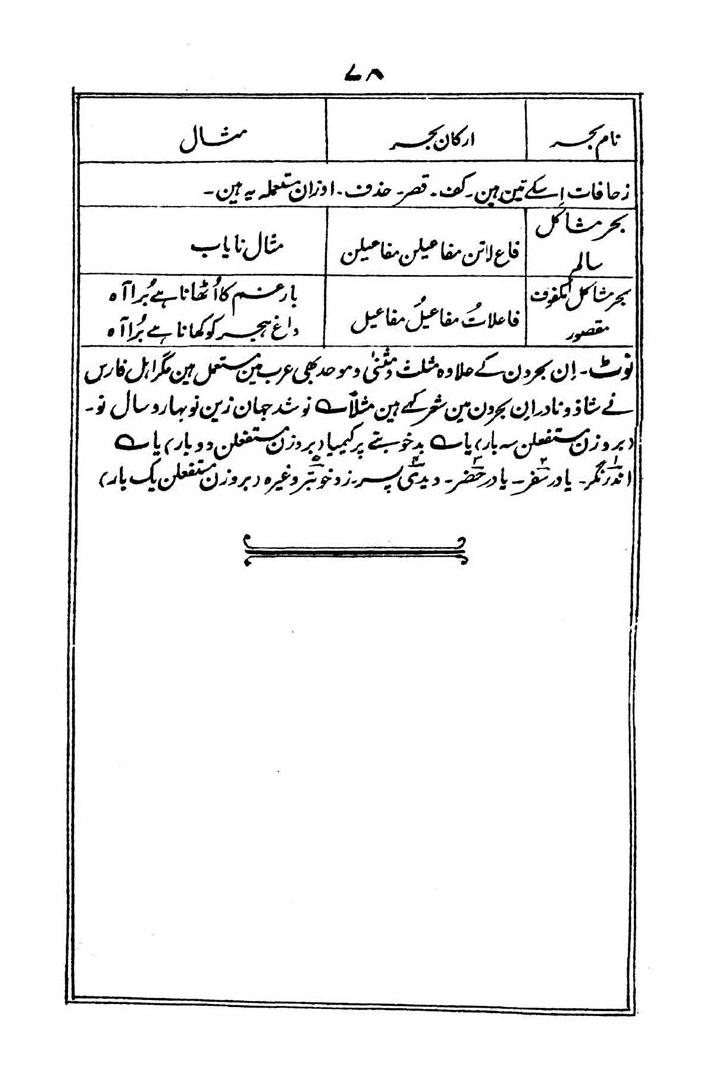 ۷۸
نام بحر ارکان بحر مثال
زحافات اِسکے تین ہین۔ کف۔ قصر۔ حذف۔ اوزان مستعملہ یہ ہین۔
بحر مشاکل سالم فاع لاتن مفاعیلن مفاعیلن مثال نایاب
بحر مشاکل مکفوف مقصور فاعلاتُ مفاعیلُ مفاعیل بار غم کا اُٹھانا ہے بُرا آہ
داغ ہجر کو کھانا ہے بُرا آہ
نوٹ۔ اِن بحرون کے علاوہ مثلث و مثنیٰ و موحد بھی عرب مین مستعمل ہین مگر اہل فارس
نے شاذ و نادر اِن بحرون مین شعر کہے ہین مثلاً نو شد جہان زین نو بہار و سال نو۔
(بروزن مستفعلن سہ بار) یا بد خوبتے پر کیمیا (بروزن مستفعلن دو بار) یا
اندر نگر۔ یا در سفر۔ یا در حضر۔ دیدی پسر۔ زو خوبتر وغیرہ (بروزن مستفعلن یک بار)